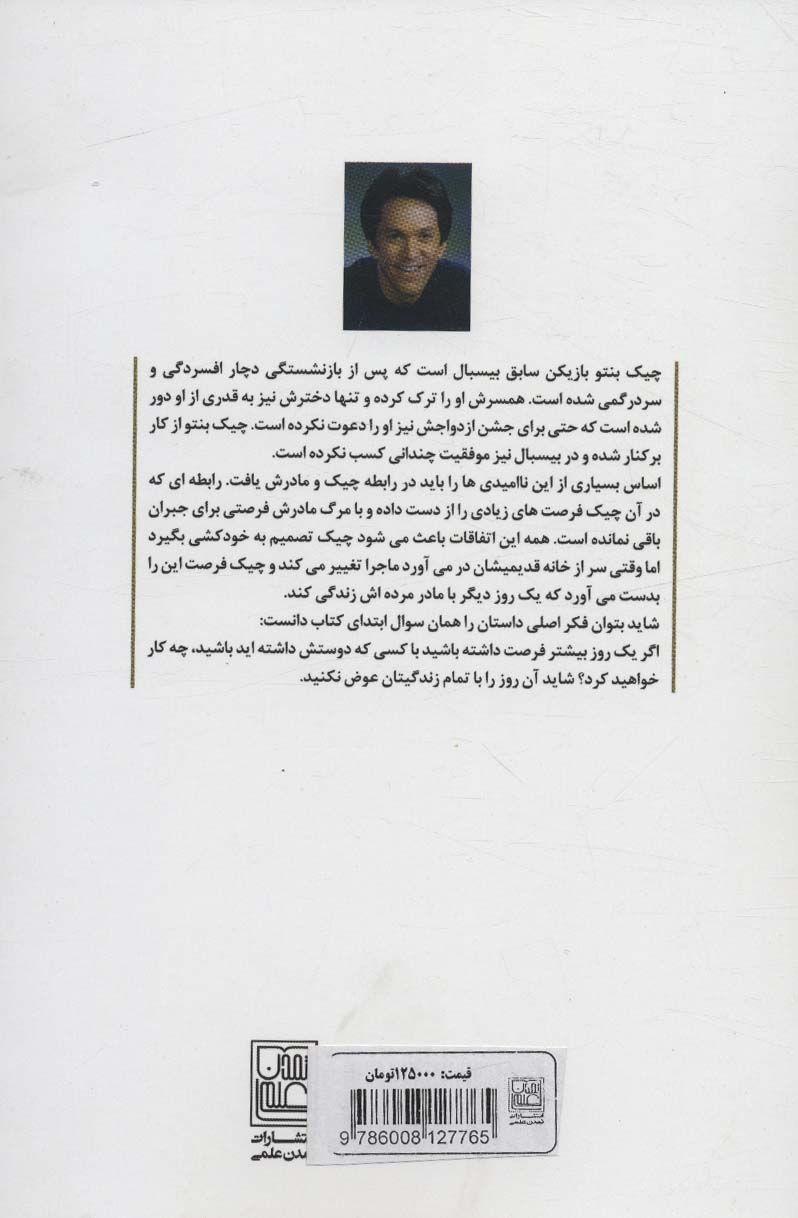 چیک بنتو بازیکن سابق بیسبال است که پس از بازنشستگی دچار افسردگی و
سردرگمی شده است. همسرش او را ترک کرده و تنها دخترش نیز به قدری از او دور
شده است که حتی برای جشن ازدواجش نیز او را دعوت نکرده است. چیک بنتو از کار
برکنار شده و در بیسبال نیز موفقیت چندانی کسب نکرده است.
اساس بسیاری از این ناامیدی ها را باید در رابطه چیک و مادرش یافت. رابطه ای که
در آن چیک فرصت های زیادی را از دست داده و با مرگ مادرش فرصتی برای جبران
باقی نمانده است. همه این اتفاقات باعث می شود چیک تصمیم به خودکشی بگیرد
اما وقتی سر از خانه قدیمیشان در می آورد ماجرا تغییر می کند و چیک فرصت این را
بدست می آورد که یک روز دیگر با مادر مرده اش زندگی کند.
شاید بتوان فکر اصلی داستان را همان سوال ابتدای کتاب دانست:
اگر یک روز بیشتر فرصت داشته باشید با کسی که دوستش داشته اید باشید، چه کار
خواهید کرد؟ شاید آن روز را با تمام زندگیتان عوض نکنید.
قیمت: ۱۲۵۰۰۰تومان
9 786008 127765
تمدن
علمی
انتشارات
تمدن علمی
تمدن
علمی
تشارات
مدن علمی